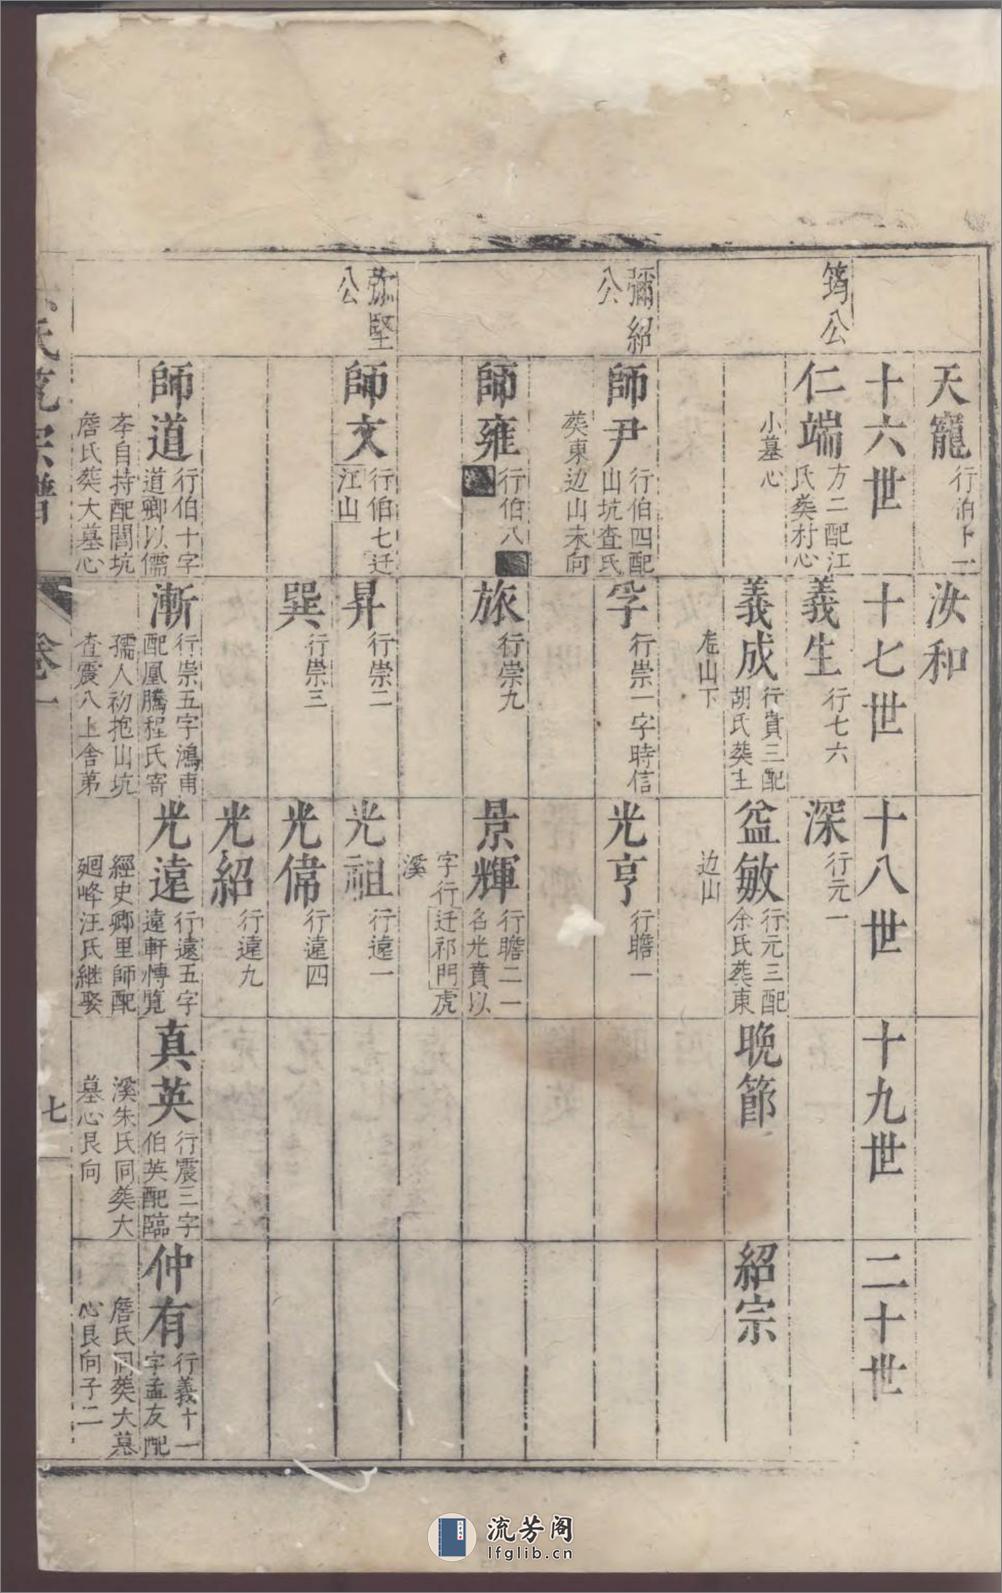 天寵行伯十一
汝和
十六世
十七世
十八世
十九世
二十世
筠公
仁端方二配江氏葵村心小墓心
義生行七六
深行元一
義成行貴三配胡氏葵土庒山下
益敏行元三配余氏葵東边山
晚節
紹宗
彌紹公
師尹行伯四配山坑查氏葵東边山未向
孚行崇一字時信
光亨行瞻一
師雍行伯八
旅行崇九
景輝行瞻二一名光賁以字行迁祁門虎溪
弥堅公
師文行伯七迁江山
昇行崇二
光祖行遠一
巽行崇三
光偉行遠四
光紹行遠九
師道行伯十字道卿以儒李自持配閣坑詹氏葵大墓心
漸行崇五字鴻甫配凰騰程氏寄孺人初抱山坑查震八上舍第
光遠行遠五字遠軒愽覧經史鄉里師配廻峰汪氏継娶
真英行震三字伯英配臨溪朱氏同葵大墓心艮向
仲有行義十一字孟友配詹氏同葵大墓心艮向子二
氏宗譜
卷一
七
流芳阁
lfglib.cn